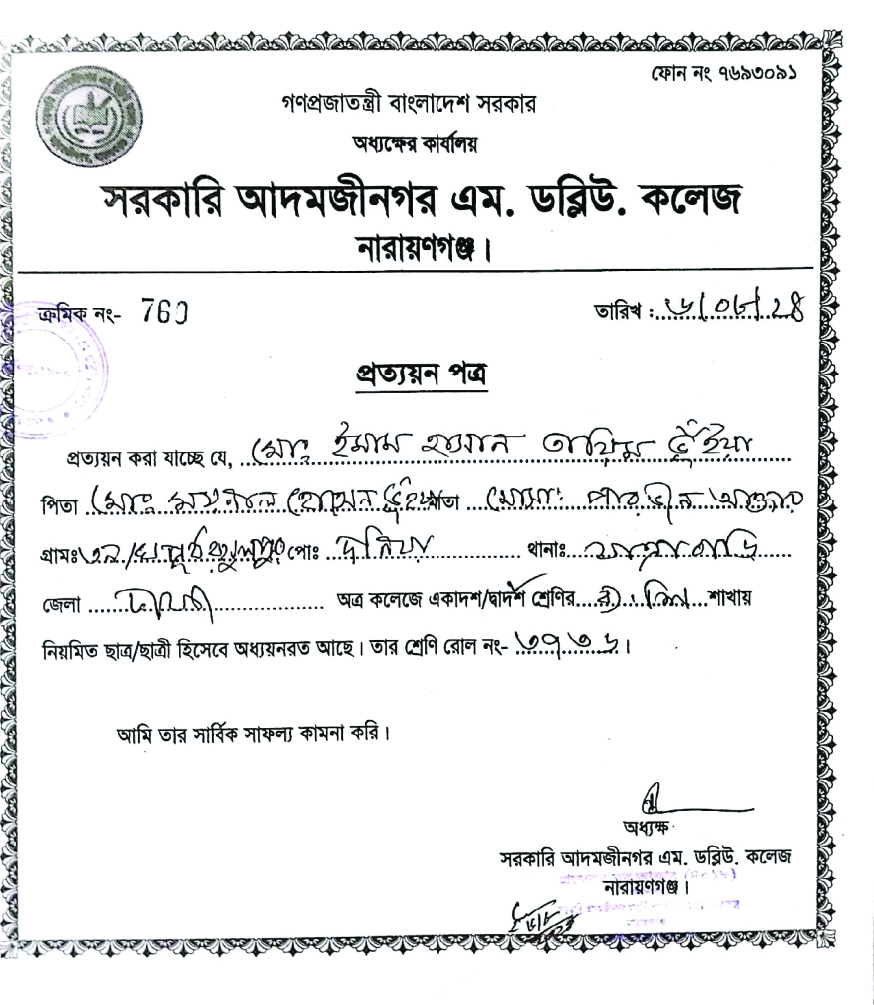 ফোন নং ৭৬৯৩০৯১
গণপ্রজাতন্ত্রী বাংলাদেশ সরকার
অধ্যক্ষের কার্যালয়
সরকারি আদমজীনগর এম. ডব্লিউ. কলেজ
নারায়ণগঞ্জ।
ক্রমিক নং- 760
তারিখ :
প্রত্যয়ন পত্র
প্রত্যয়ন করা যাচ্ছে যে, মোঃ ইমাম হাসান তায়িম ভূঁইয়া
পিতা মোঃ ময়নাল হোসেন ভূঁইয়া মাতা মোসাঃ পারভীন আক্তার
গ্রামঃ পূর্ব রসুলপুর পোঃ দনিয়া থানাঃ যাত্রাবাড়ি
জেলা ঢাকা অত্র কলেজে একাদশ/দ্বাদশ শ্রেণির শাখায়
নিয়মিত ছাত্র/ছাত্রী হিসেবে অধ্যয়নরত আছে। তার শ্রেণি রোল নং- ৩৭৩৬।
আমি তার সার্বিক সাফল্য কামনা করি।
অধ্যক্ষ
সরকারি আদমজীনগর এম. ডব্লিউ. কলেজ
নারায়ণগঞ্জ।